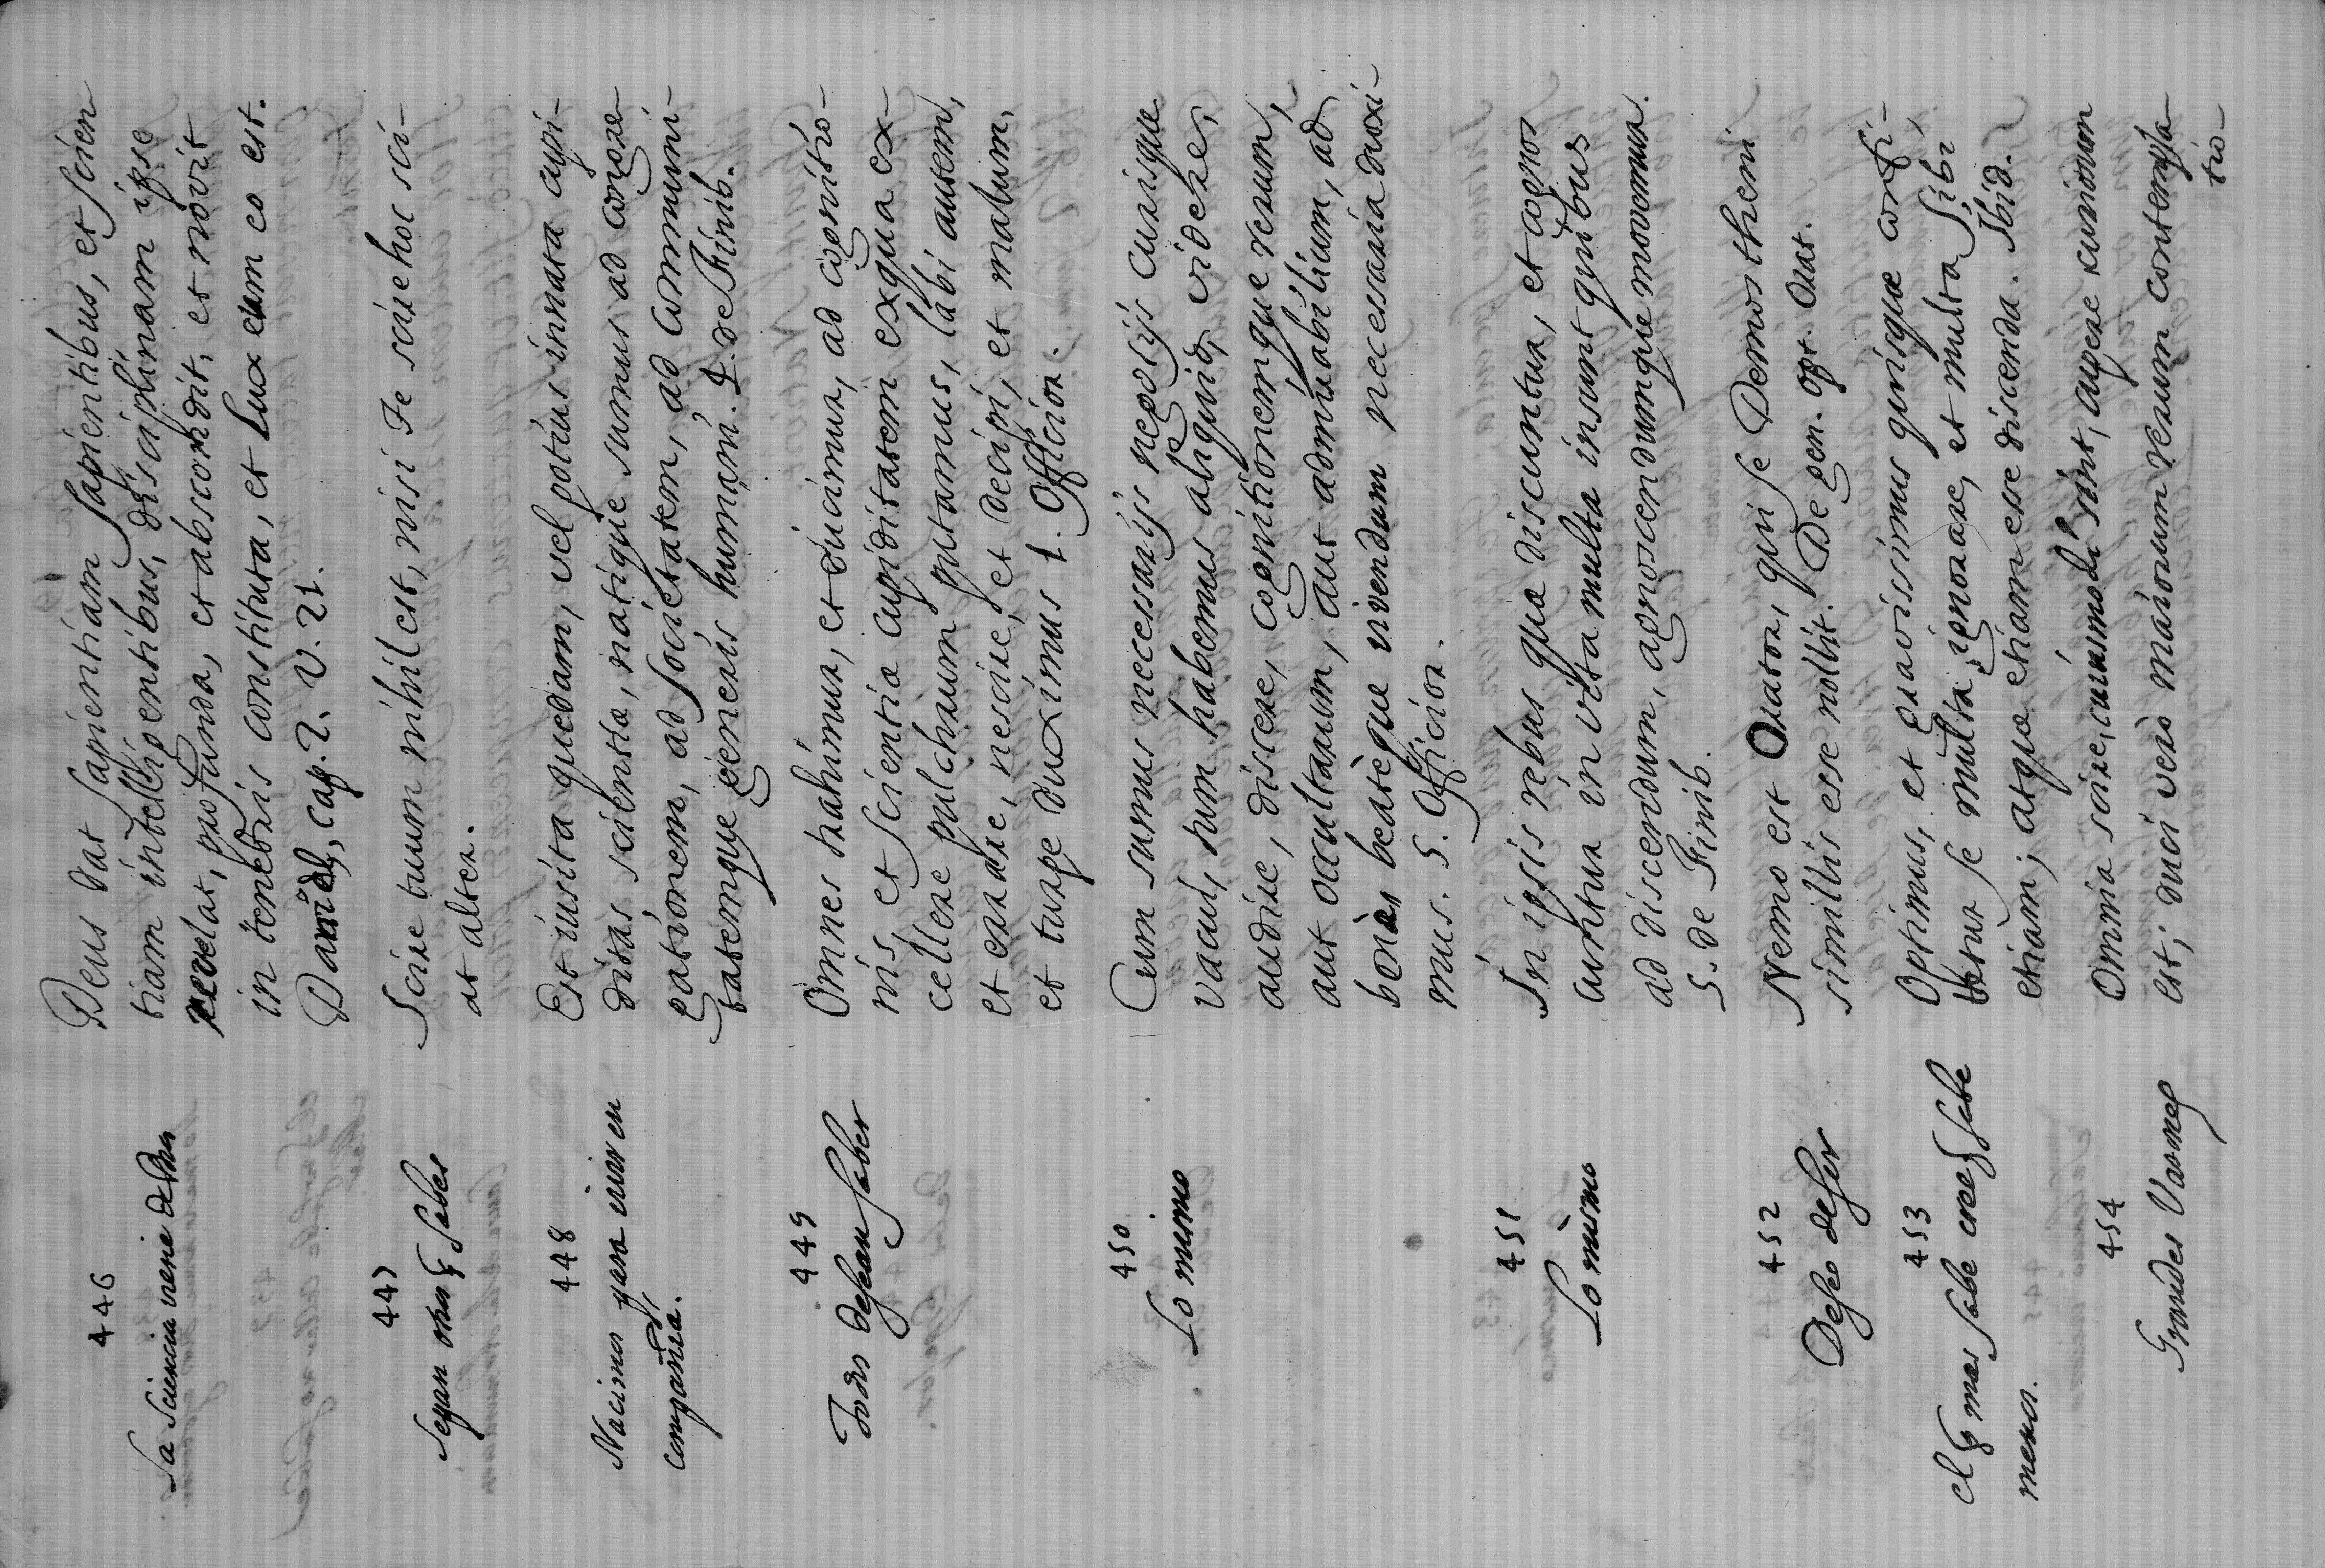 446
La sciencia viene de Dios
Deus dat sapientiam Sapientibus, et scien
tiam intelligentibus, disciplinam ipse
revelat, profunda, et abscondit, et novit
in tenebris constituta, et Lux cum eo est.
Daniel, cap. 2. v. 21.
447
Sepan otros q̃ sabes
Scire tuum nihil est, nisi te scire hoc sci-
at alter.
448
Nacimos para vivir en
compañia.
Est insita quedam, vel potius innata cupi-
ditas scientiæ, natique sumus ad congre-
gationem, ad societatem, ad communi-
tatemque generis humani. 4. de Finib.
449
Todos desean saber
Omnes trahimur, et ducimur, ad cognitio-
nis, et scientiæ cupiditatem exqua ex-
cellere pulchrum putamus, labi autem,
et errare, nescire, et decipi, et malum,
et turpe duximus 1. Officior.
450
Lo mimo
Cum sumus neccessarijs negotijs curisque
vacui, tum habemus aliquid videre,
audire, discere, cognitionemque rerum,
aut occultarum, aut admirabilium, ad
bene beatèque vivendum necessaria duxi-
mus. 5. Officior.
451
Lo mismo
In ipsis rebus quæ discuntur, et cognos
cuntur in vita multa insunt quibus
ad discendum, agnoscendumque movemur.
5. de Finib.
452
Deseo de ser
Nemo est Orator, qui se Demostheni
simillis esse nollit. De gen. opt. Orat.
453
el q̃ mas sabe cree q̃ sabe
menos.
Optimus, et gravissimus quisque confi-
tetur se multa ignorare, et multa sibi
etiam, atque etiam esse discenda. Ibid.
454
Grandes Varones
Omnia scire, cuiusmodi sint, cupere curiorum
est; duci verò maiorum rerum contempla
tio-